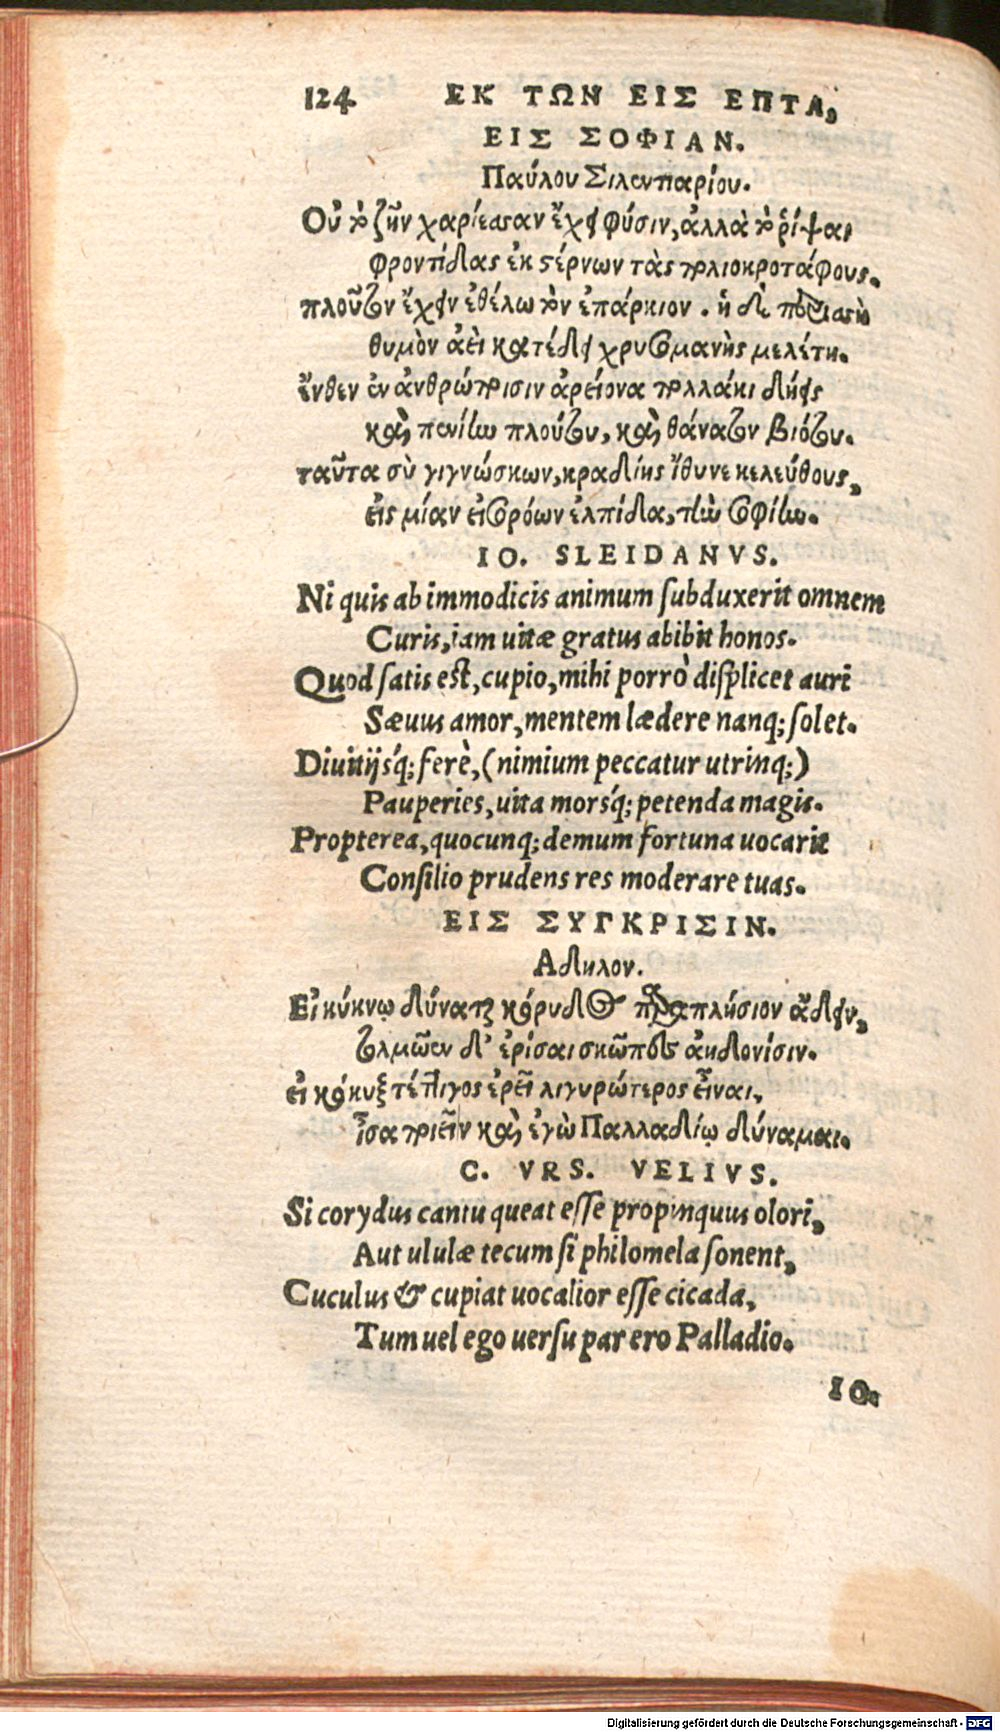 124 ΕΚ ΤΩΝ ΕΙΣ ΕΠΤΑ,
ΕΙΣ ΣΟΦΙΑΝ.
Παύλου Σιλενπαρίου.
Οὐ τὸ ζῆν χαρίεσσαν ἔχει φύσιν, ἀλλὰ τὸ ῥίψαι
φροντίδας ἐκ στέρνων τὰς πολιοκροτάφους.
πλοῦτον ἔχειν ἐθέλω τὸν ἐπάρκιον. ἡ δὲ περισσὴ
θυμὸν ἀεὶ κατέδει χρυσομανὴς μελέτη.
ἔνθεν ἐν ἀνθρώποισιν ἀρείονα πολλάκι δήεις
καὶ πενίην πλούτου, καὶ θάνατον βιότου.
ταῦτα σὺ γιγνώσκων, κραδίης ἴθυνε κελεύθους,
εἰς μίαν εἰσορόων ἐλπίδα, τὴν σοφίην.
IO. SLEIDANVS.
Ni quis ab immodicis animum ſubduxerit omnem
Curis, iam uitæ gratus abibit honos.
Quod ſatis eſt, cupio, mihi porrò diſplicet auri
Sæuus amor, mentem lædere nanq; ſolet.
Diuitijsq́; ferè, (nimium peccatur utrinq;)
Pauperies, uita morsq́; petenda magis.
Propterea, quocunq; demum fortuna uocarit
Conſilio prudens res moderare tuas.
ΕΙΣ ΣΥΓΚΡΙΣΙΝ.
Αδηλον.
Εἰ κύκνῳ δύναται κόρυδος παραπλήσιον ᾄδειν,
τολμῶεν δ' ἐρίσαι σκῶπες ἀηδονίσιν.
εἰ κόκυξ τέττιγος ἐρεῖ λιγυρώτερος εἶναι,
ἶσα ποιεῖν καὶ ἐγὼ Παλλαδίῳ δύναμαι.
C. VRS. VELIVS.
Si corydus cantu queat eſſe propinquus olori,
Aut ululæ tecum ſi philomela ſonent,
Cuculus & cupiat uocalior eſſe cicada,
Tum uel ego uerſu par ero Palladio.
IO.
Digitalisierung gefördert durch die Deutsche Forschungsgemeinschaft - DFG